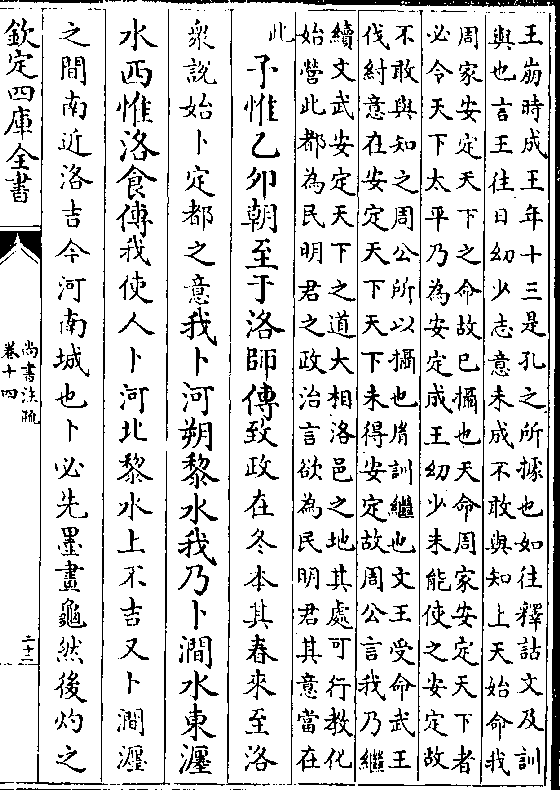 王崩時成王年十三是孔之所據也如往釋詁文及訓
與也言王往日幼少志意未成不敢與知上天始命我
周家安定天下之命故已攝也天命周家安定天下者
必令天下太平乃為安定成王幼少未能使之安定故
不敢與知之周公所以攝也胤訓繼也文王受命武王
伐紂意在安定天下天下未得安定故周公言我乃繼
續文武安定天下之道大相洛邑之地其處可行教化
始營此都為民明君之政治言欲為民明君其意當在
此
予惟乙卯朝至于洛師傳致政在冬本其春來至洛
衆說始卜定都之意我卜河朔黎水我乃卜澗水東瀍
水西惟洛食傳我使人卜河北黎水上不吉又卜澗瀍
之間南近洛吉今河南城也卜必先墨畫龜然後灼之
欽定四庫全書
尚書注疏
卷十四
二十二